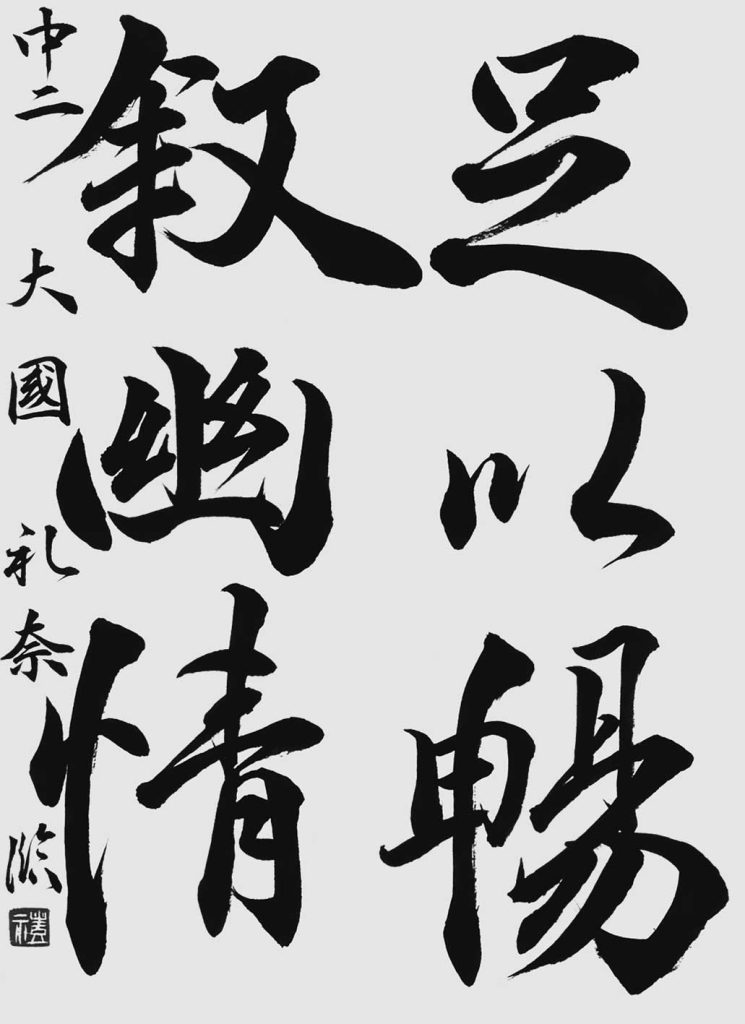 足以暢
敘幽情
中二 大國礼奈臨
禮